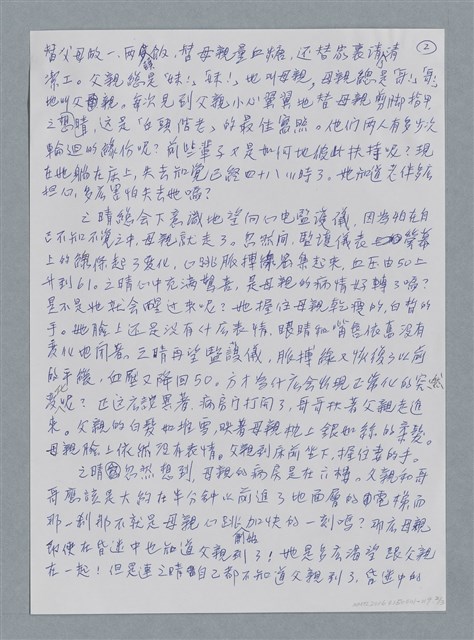 ②
替父母做一、兩餐飯，替母親量血糖，還替家裏請清
潔工。父親總是「妹！妹！」地叫母親，母親總是「哥！哥！」
地叫父親。每次見到父親小心翼翼地替母親剪脚指甲
之晴想，這是「白頭偕老」的最佳寫照。他們兩人有多少次
輪迴的緣份呢？前些輩子又是如何地彼此扶持呢？現
在她躺在床上，失去知覺已經四十八小時了。她知道老伴多麼
担心，多麼害怕失去她嗎？
之晴總會下意識地望向心电監護儀，因為怕在自
己不知不覺之中，母親就走了。忽然間，監護儀表螢幕
上的線條起了变化，心跳脈搏線密集起來，血压由50上
升到61。之晴心中充滿驚喜，是母親的病情好轉了嗎？
是不是她就会醒过來呢？她握住母親乾瘦的，白皙的
手。她臉上还是沒有什么表情，眼睛和嘴唇依舊沒有
变化地閉着。之晴再望監護儀，脈搏線又恢復了以前
的平緩，血壓又降回50。方才為什么会出現不正常化的突然
变呢？正这么說異着，病房门打開了，哥哥扶著父親走進
來。父親的白髮如堆雪，映着母親枕上銀如絲的柔髮。
母親臉上依然沒有表情。父親到床前坐下，握住妻的手。
之晴忽然想到，母親的病房是在六樓。父親和哥
哥應該是大約在半分钟以前進了地面層的電梯而
那一剎那不就是母親心跳加快的一刻嗎？那麼母親
即使在昏迷中也知道父親到了！她是多么渴望跟父親
在一起！但是連之晴自己都不知道父親到了，昏迷中的